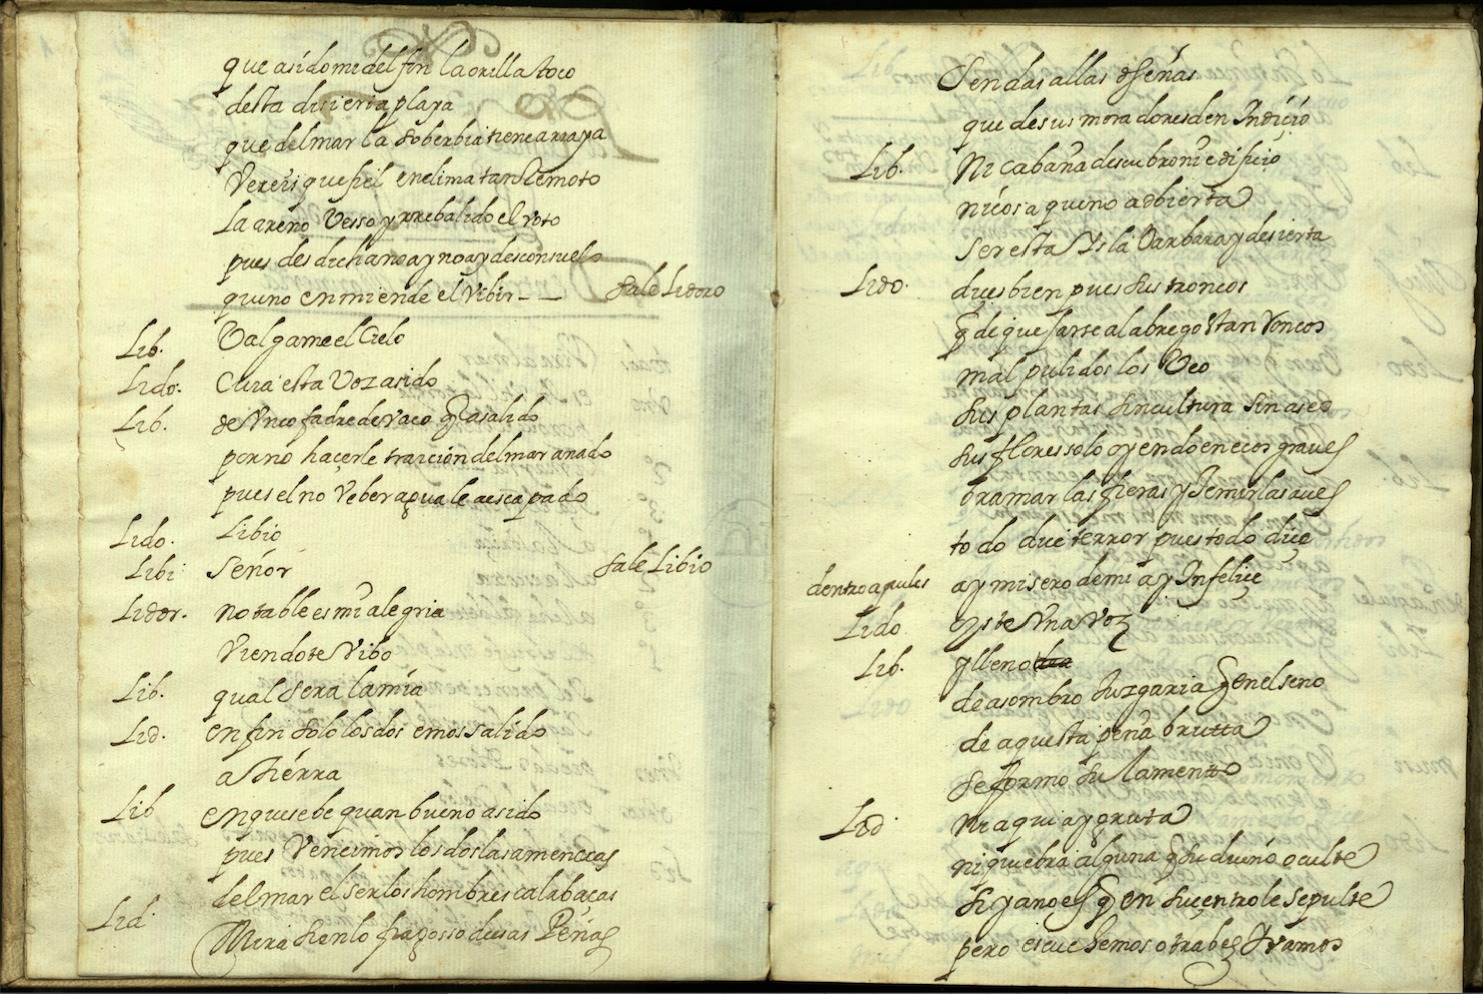 que asido mi delfin la orilla toco
desta disierta playa
que del mar la soberbia tiene a raya
vereis que si el en clima tan Remoto
la areno vesso y rrebalido el voto
pues desdicha no ay no ay desconsuelo
quno enmiende el vibir -- sale Lidoro
Lib. Valgame el Cielo
Lido. Cuia esta Voz a sido
Lib. de Vn cofadre de vaco q a salido
por no haçerle traiçion del mar a nado
pues el no beber agua le a escapado
Lido. Libio
Libi señor sale Libio
Lidor. notable es mi alegria
Viendote Vibo
Lib. qual sera la mia
Lid. en fin solo los dos emos salido
a tierra
Lib en que se be quan bueno a sido
pues Vencimos los dos las amenaças
del mar el ser los hombres calabaças
Lid Mira si en lo fragosso de sas Peñas
Sendas allas o señas
que de sus moradores den Indiçio
Lib. Ni cabaña descubro ni edifiçio
ni cosa que no adbierta
ser esta Ysla barbara y desierta
Lido. diçes bien pues sus troncos
q de quejarse al abrego estan Roncos
mal pulidos los Veo
sus plantas sin cultura sin aseo
sus flores solo oyendo en ecos graues
bramar las fieras y Jemir las aues
todo diçe terror pues todo diçe
dentro apules ay misero de mi ay Infeliçe
Lido oyste Vna voz
Lib. y lleno
de asombro Juzgaria q en el seno
de aquesta peña brutta
se formo su lamento
Lid. Ni aqui ay gruta
ni quiebra alguna q su dueño oculte
si ya no es q en su çentro le sepulte
pero escuchemos otra bez Y vamos